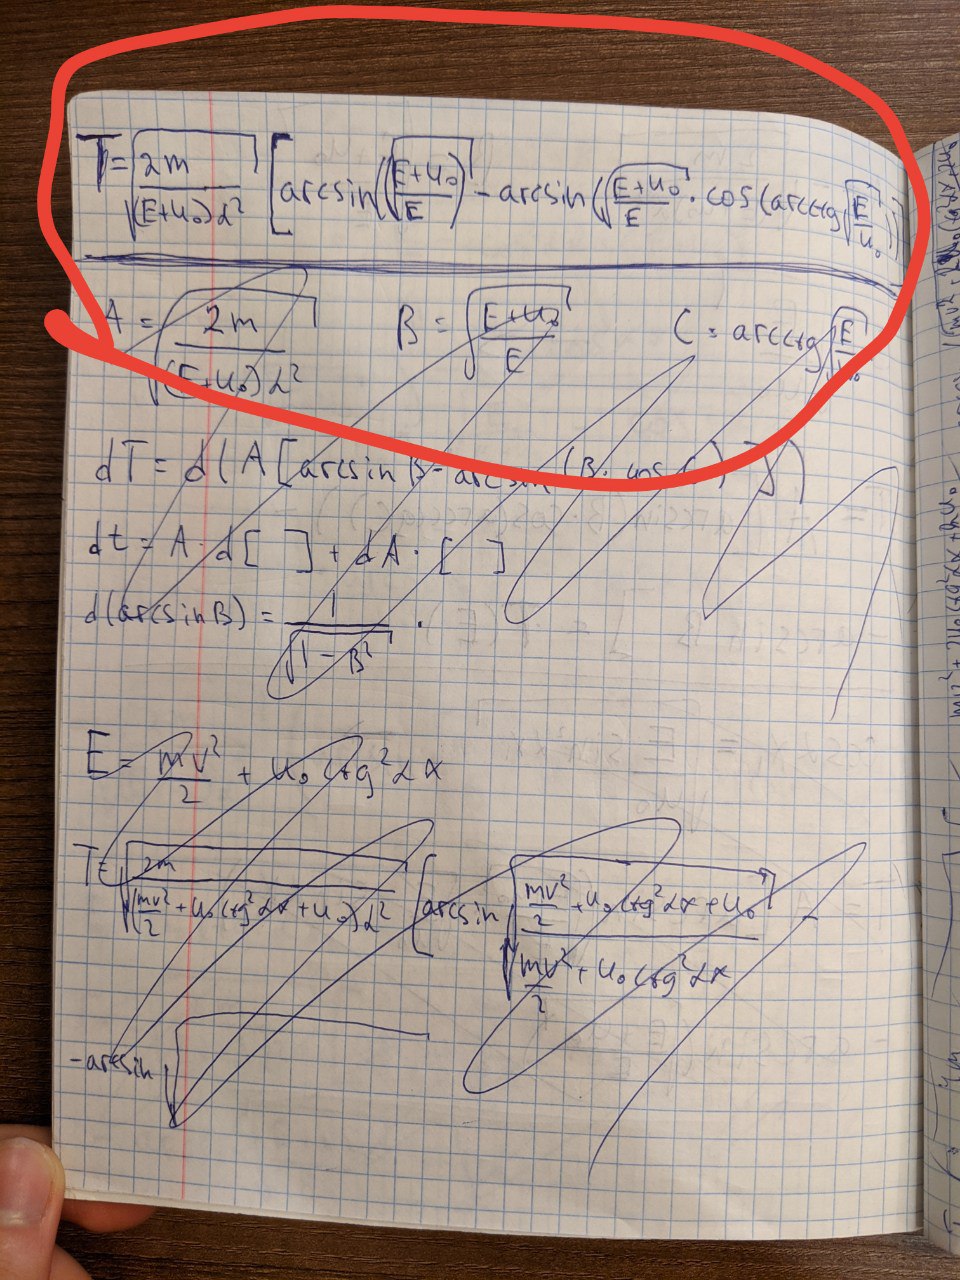 T = √(2m / (E+U₀)α²) [arcsin(√(E+U₀ / E)) - arcsin(√(E+U₀ / E) · cos(arcctg √(E / U₀)))]
A = √(2m / (E+U₀)α²) B = √(E+U₀ / E) C = arcctg √(E / U₀)
dT = d(A[arcsin B - arcsin(B · cos C)])
dt = A · d[ ] + dA · [ ]
d(arcsin B) = 1 / √(1 - B²) ·
E = mv² / 2 + U₀ ctg² αx
T = √(2m / (mv²/2 + U₀ ctg² αx + U₀)α²) [arcsin √(mv²/2 + U₀ ctg² αx + U₀ / mv²/2 + U₀ ctg² αx) -
- arcsin √